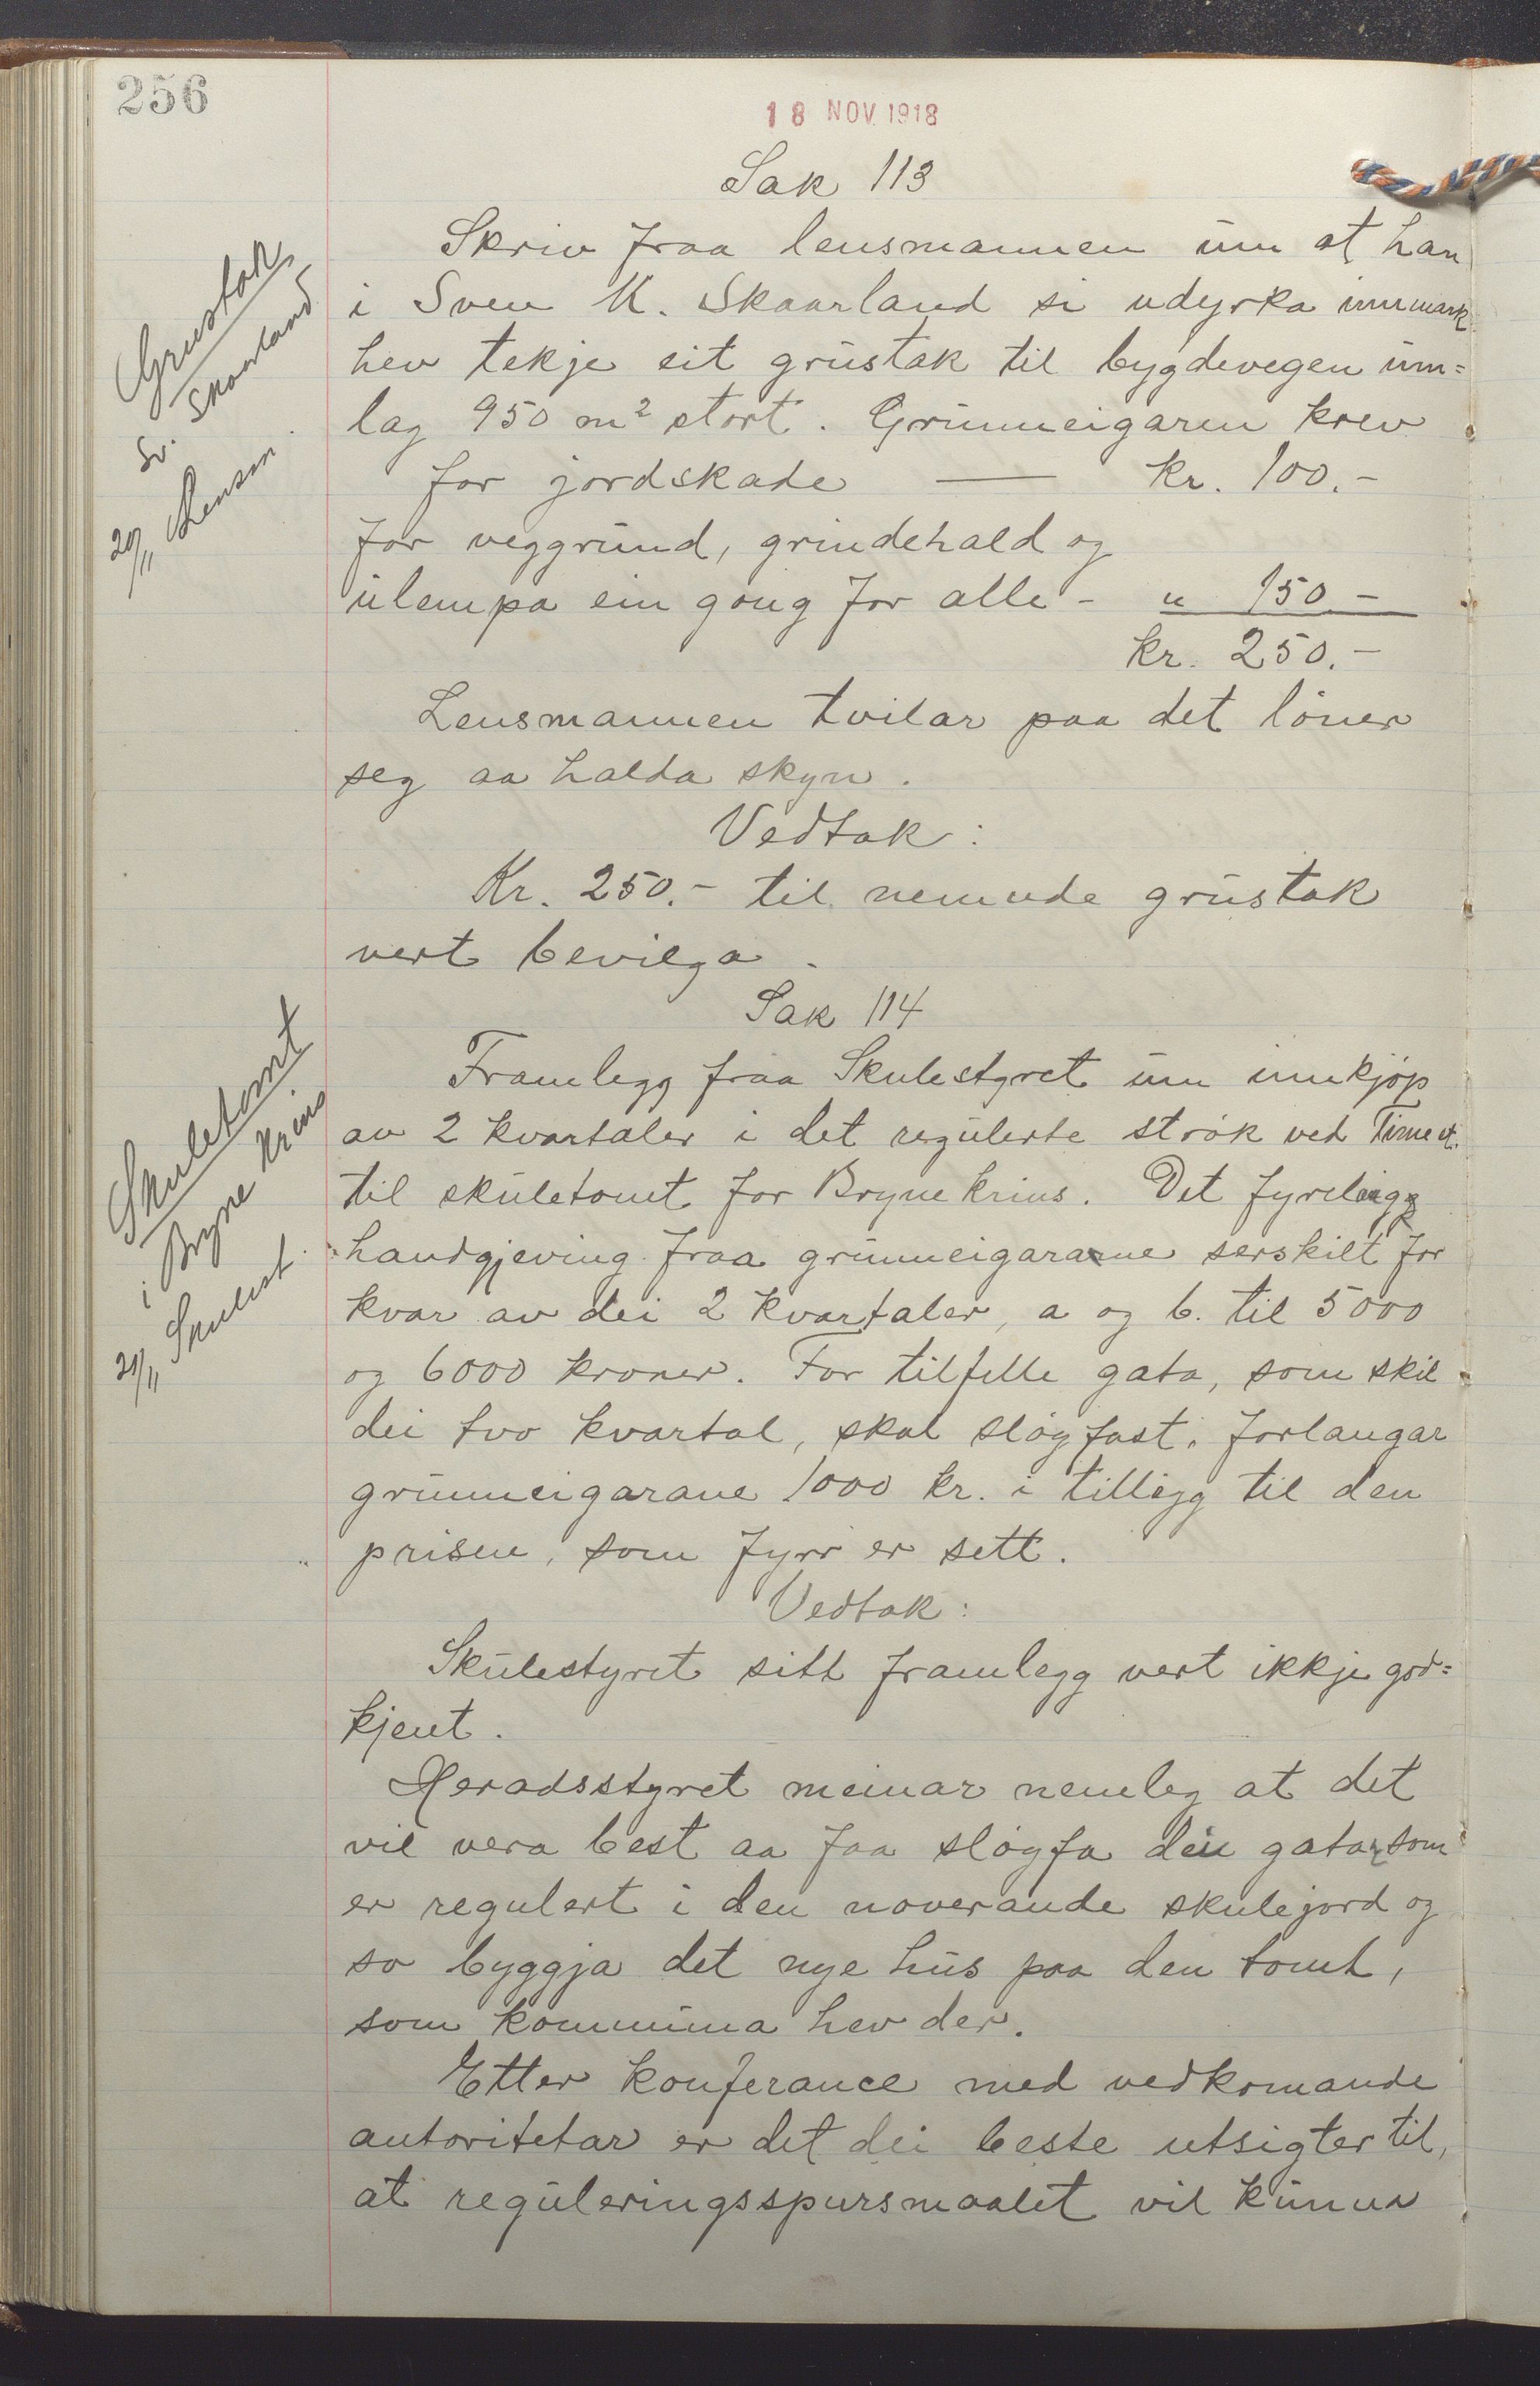 256
18 NOV. 1918
Sak 113
Skriv fraa lensmannen um at han
i Sven K. Skaarland si udyrka innmark
hev tekje eit grustak til bygdevegen um=
lag 950 m² stort. Grunneigaren krev
for jordskade — kr. 100.-
for veggrund, grindehald og
ulempa ein gong for alle - " 150.-
kr. 250.-
Lensmannen tvilar paa det löner
seg aa halda skyn.
Vedtak:
Kr. 250.- til nemnde grustak
vert bevilga.
Grustak
Sv. Skaarland
20/11 Lensm.
Sak 114
Framlegg fraa Skulestyret um innkjöp
av 2 kvartaler i det regulerte strök ved Time st.
til skuletomt for Bryne krins. Det fyrelegg
handgjeving fraa grunneigararne serskilt for
kvar av dei 2 kvartaler, a og b. til 5000
og 6000 kroner. For tilfelle gata, som skil
dei tvo kvartal, skal slöyfast, forlangar
grunneigarane 1000 kr. i tillegg til den
prisen, som fyrr er sett.
Vedtak:
Skulestyret sitt framlegg vert ikkje god=
kjent.
Heradsstyret meinar nemleg at det
vil vera best aa faa slöyfa dei gatar som
er regulert i den noverande skulejord og
so byggja det nye hus paa den tomt,
som kommuna hev der.
Etter konferance med vedkomande
autoritetar er det dei beste utsigter til,
at reguleringsspursmaalet vil kunna
Skuletomt
i Bryne krins
20/11 Skulest.